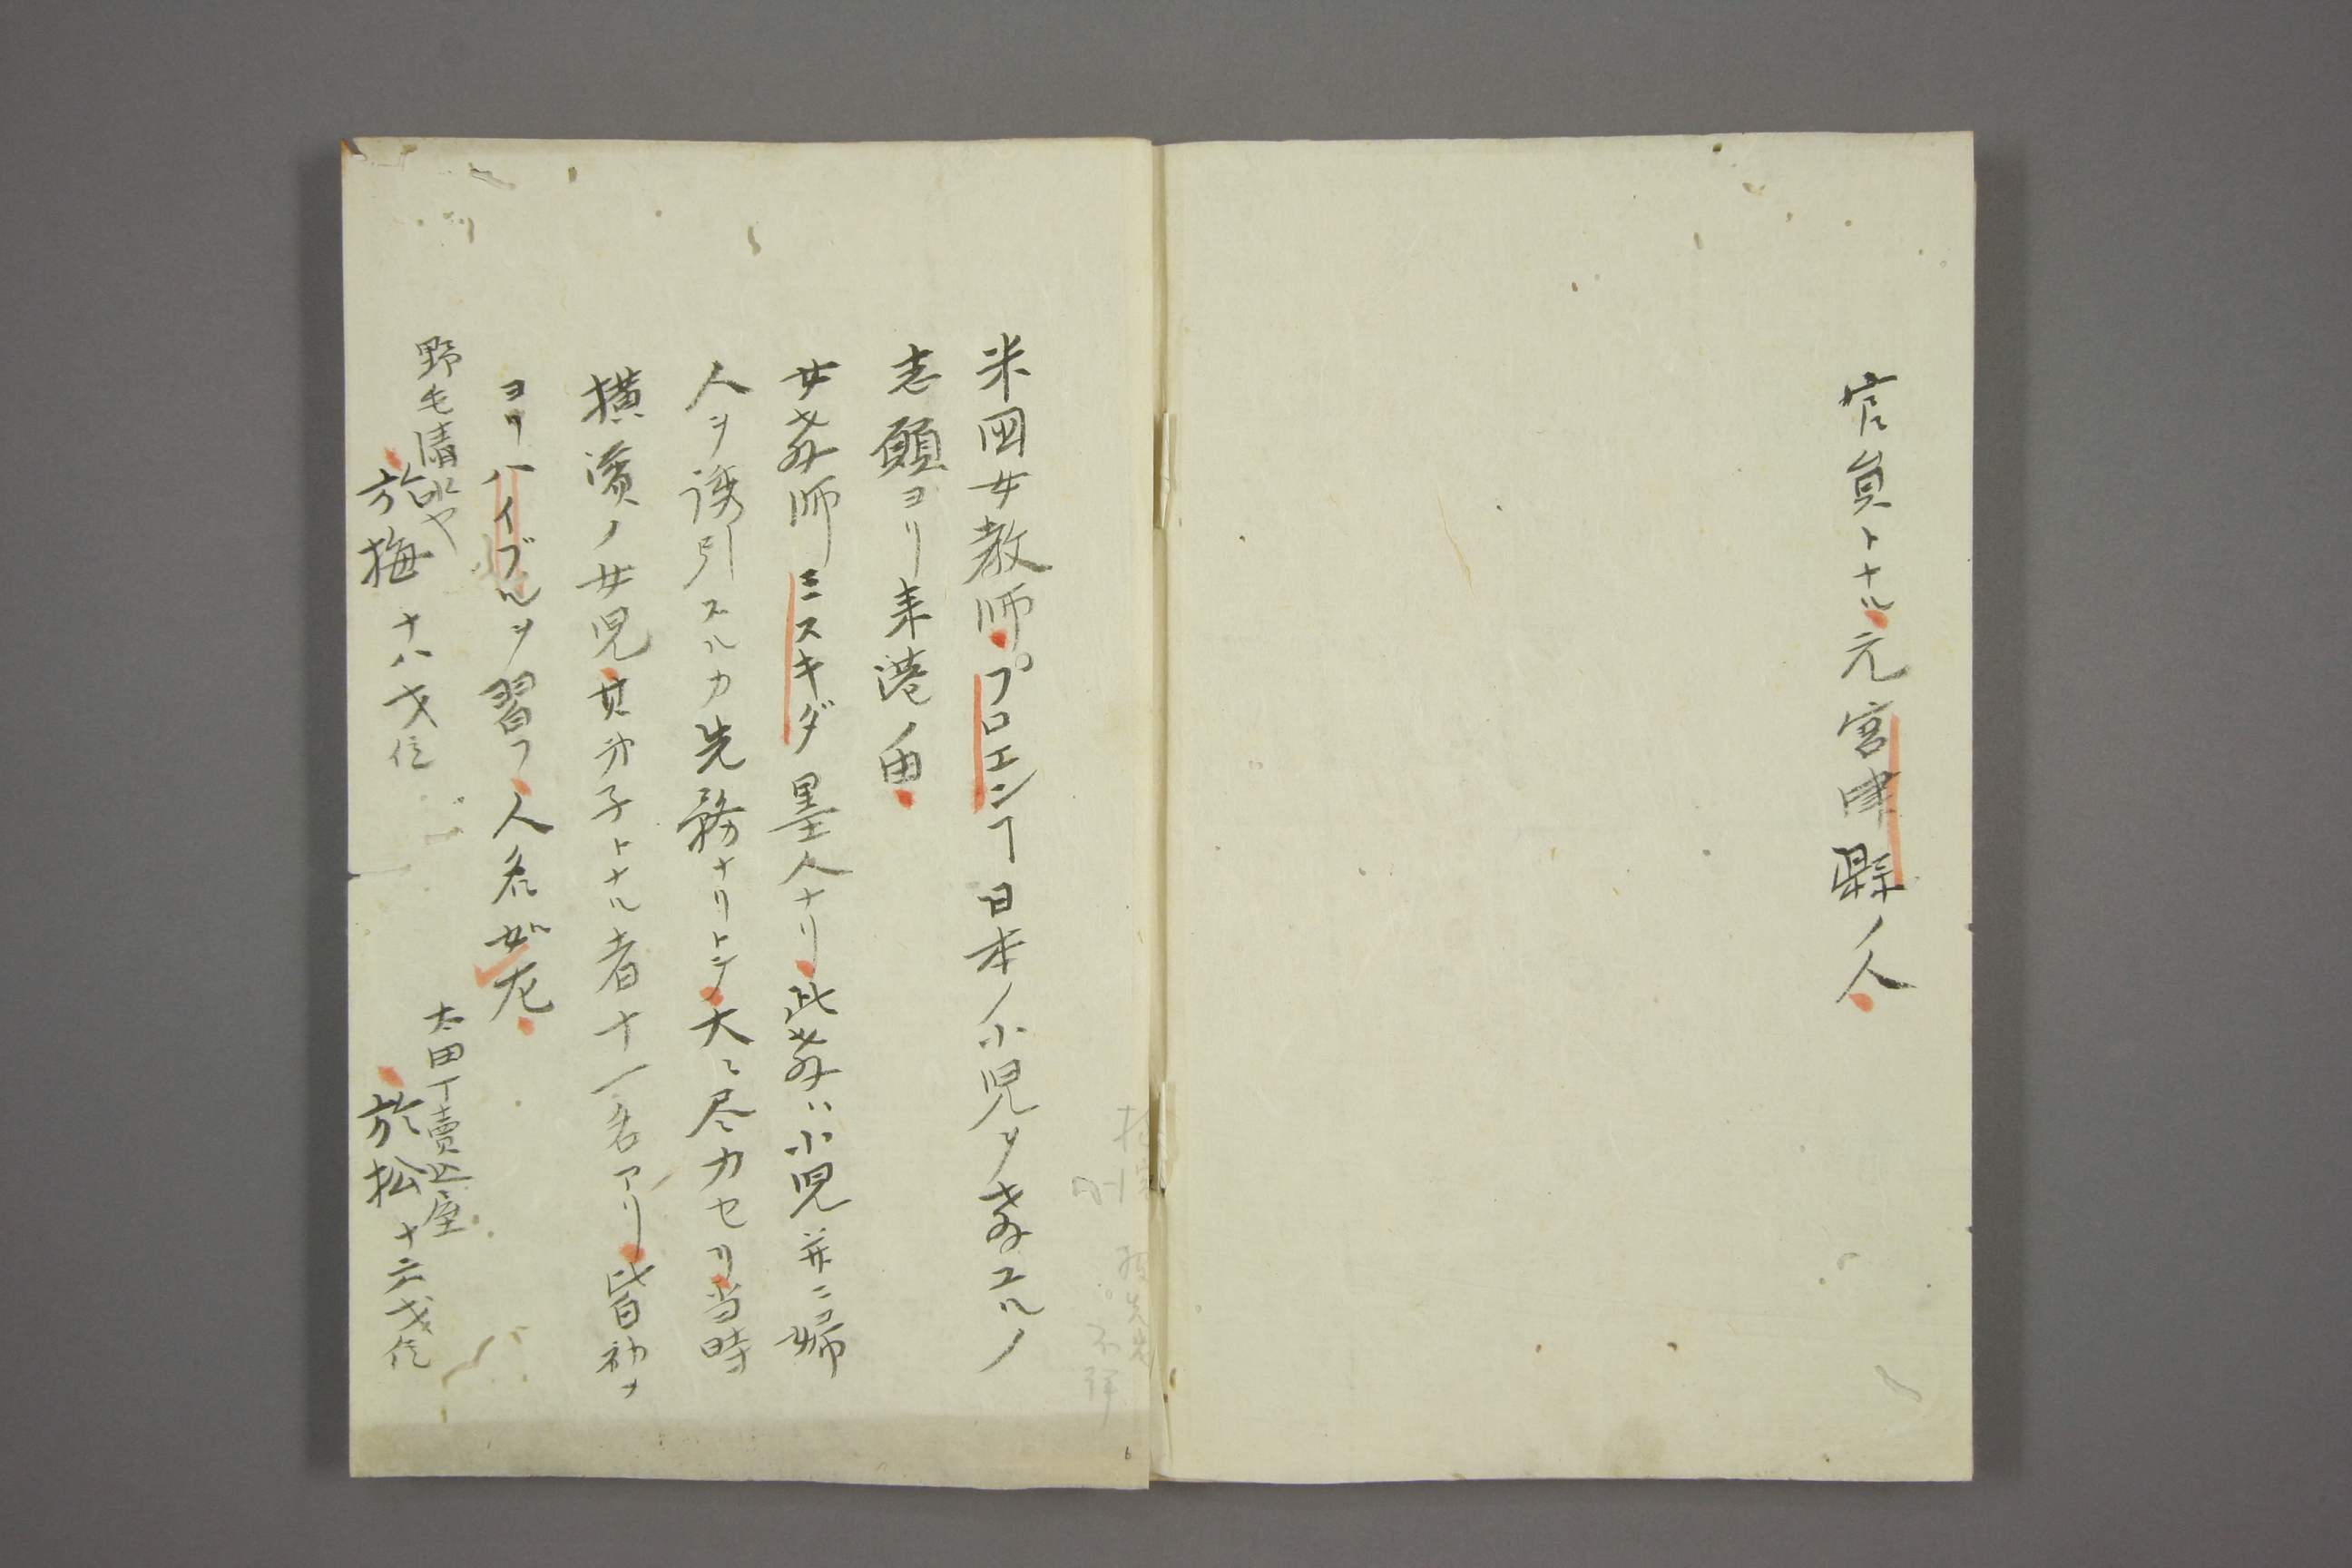 官員トナル元宮津縣ノ人
米国女教師プロエンて日本ノ小児ヲ教エルノ
志願ヨリ来港ノ由
女教師ミスキダ墨人ナリ此教ハ小児并ニ婦
人ヲ誘引スルカ先務ナリトテ大ニ尽力セリ当時
横濱ノ女児其弟子トナル者十一名アリ皆初メ
ヨリハイブルヲ習フ人名如左
野毛清水や
於梅 十八才位
太田丁賣込屋
於松 十六才位